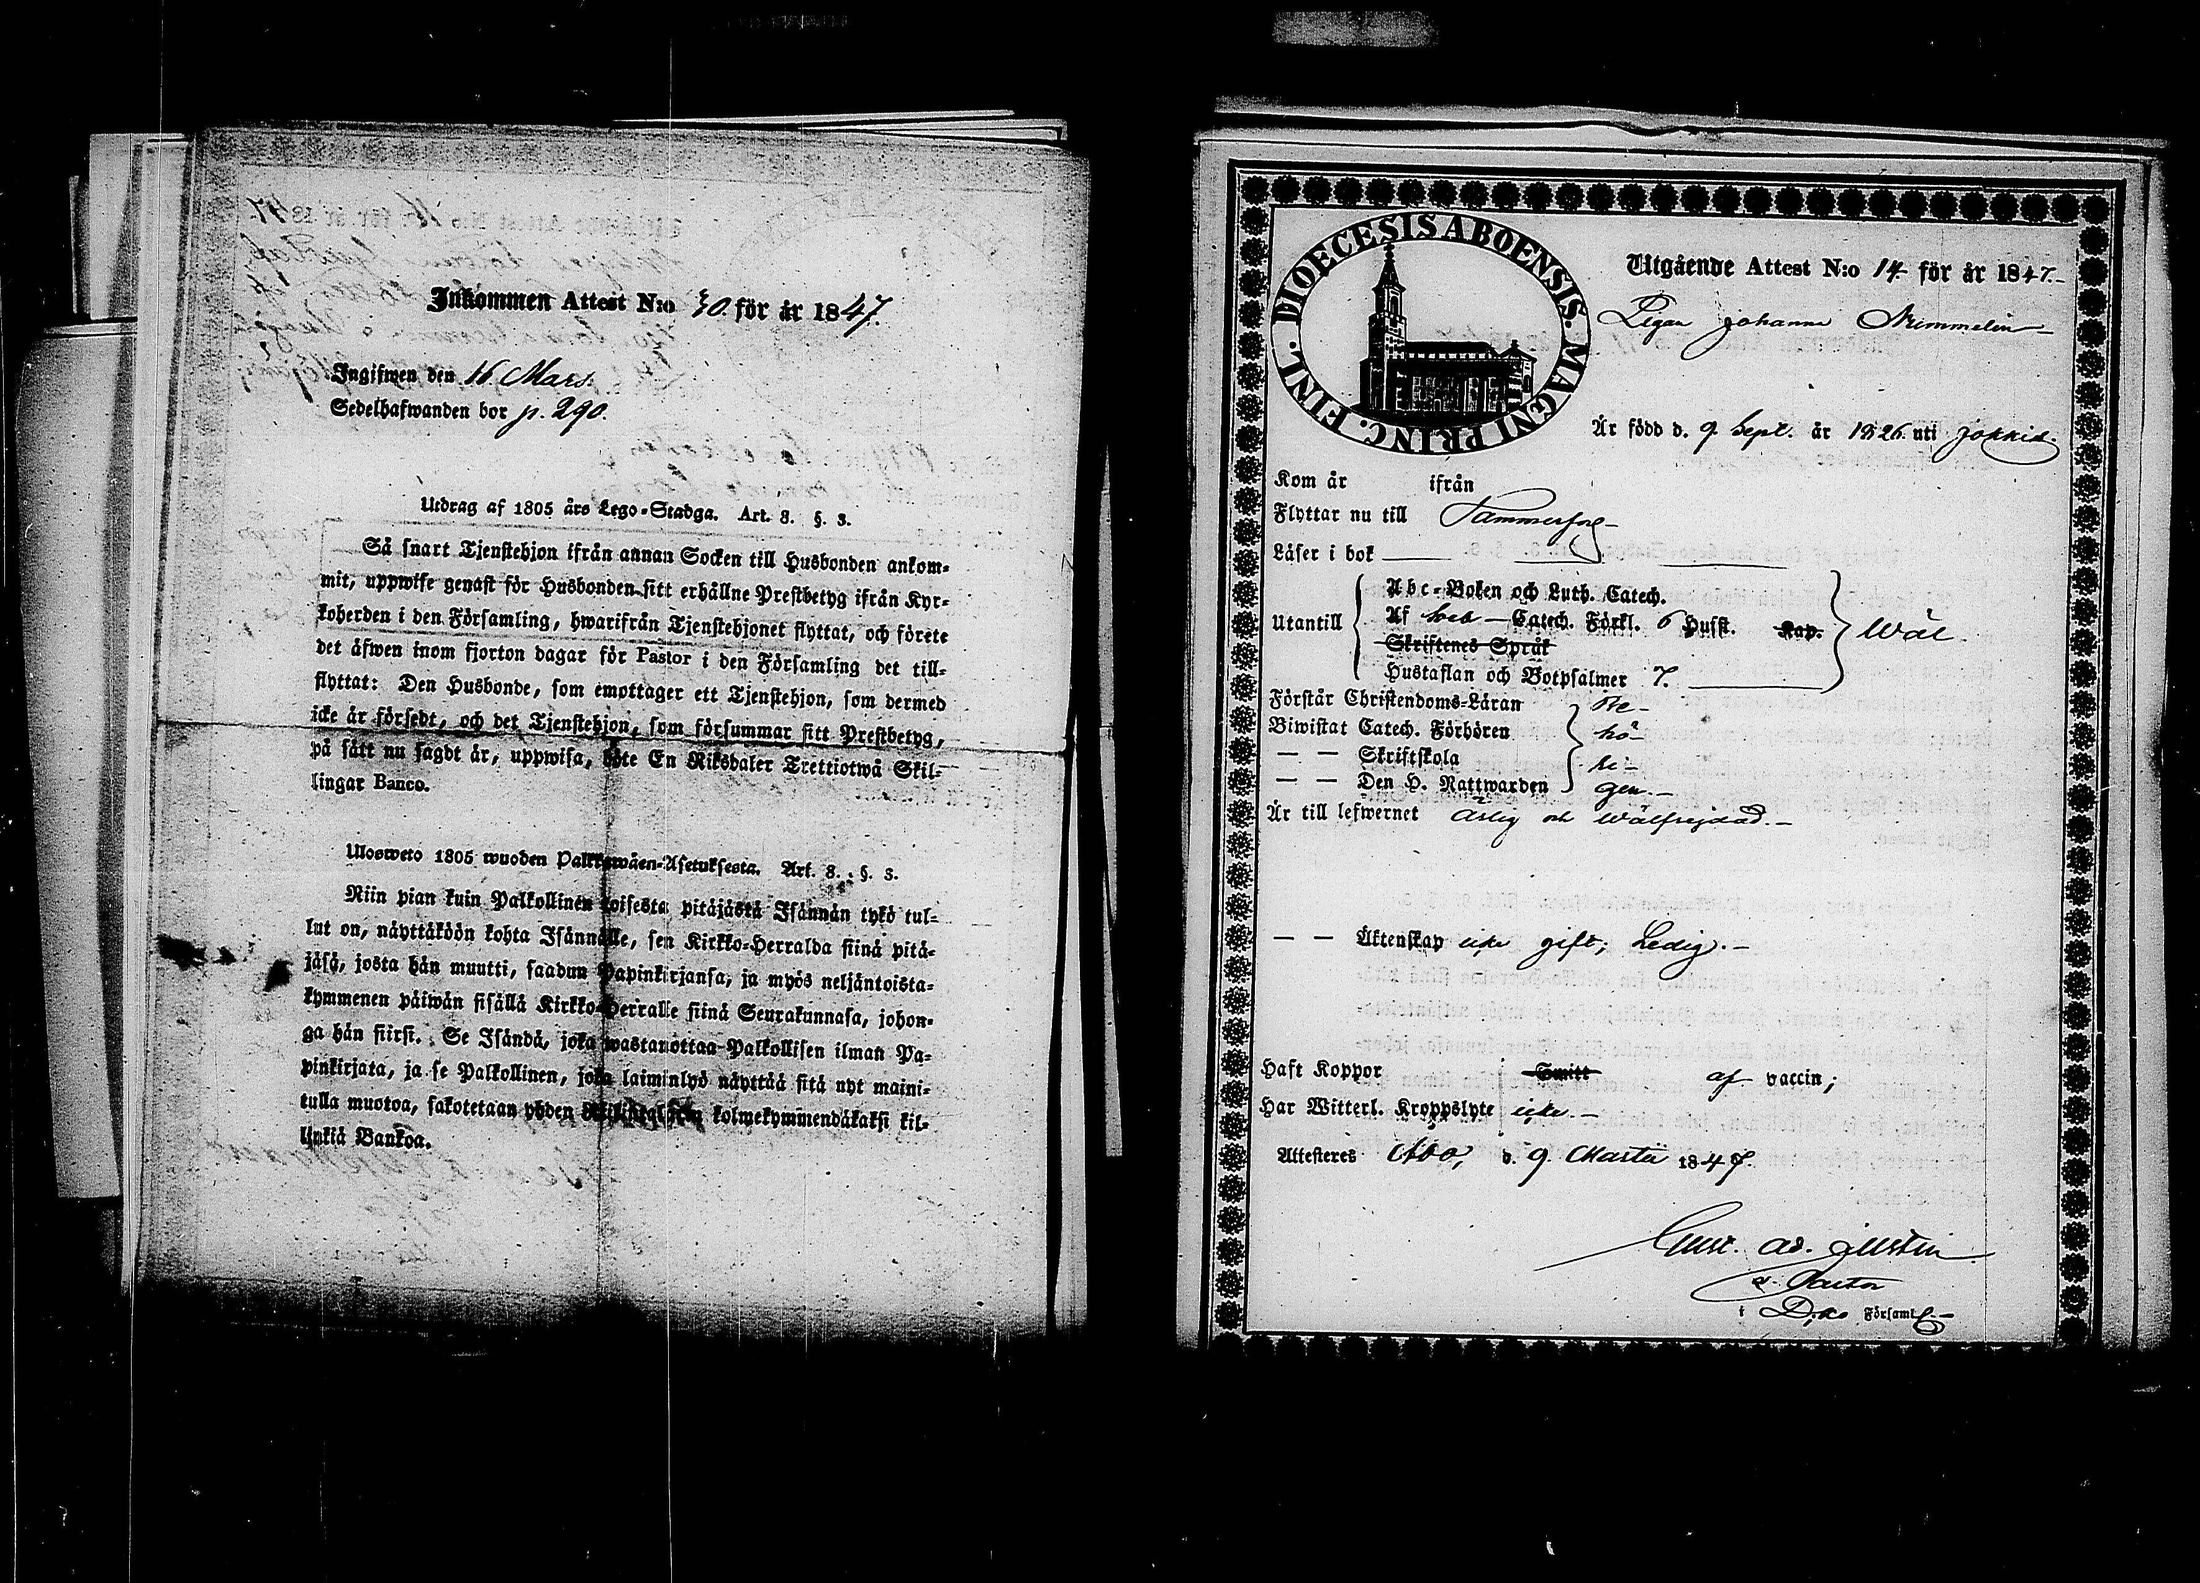 Inkommen Attest N:o 30. för år 1847.
Ingifwen den 16 Mars.
Sedelhafwanden bor p. 290.
Utdrag af 1805 års Lego-Stadga. Art. 8. §. 3.
Så snart Tjenstehjon ifrån annan Socken till Husbonden ankom-
mit, uppwise genast för Husbonden sitt erhållne Prestbetyg ifrån Kyr-
koherden i den Församling, hwarifrån Tjenstehjonet flyttat, och förete
det äfwen inom fjorton dagar för Pastor i den Församling det till-
flyttat: Den Husbonde, som emottager ett Tjenstehjon, som dermed
icke är försedt, och det Tjenstehjon, som försummar sitt Prestbetyg,
på sätt nu sagdt är, uppwisa, böte En Riksdaler Trettiotwå Skil-
lingar Banco.
Ulosweto 1805 wuoden Palkkawäen-Asetuksesta. Art. 8. §. 3.
Niin pian kuin Palkollinen toisesta pitäjästä Isännän tykö tul-
lut on, näyttäköön kohta Isännälle, sen Kirkko-Herralda siinä pitä-
jäsä, josta hän muutti, saadun Papinkirjansa, ja myös neljäntoista-
kymmenen päiwän sisällä Kirkko-Herralle siinä Seurakunnasa, johon-
ga hän siirst. Se Isändä, joka wastanottaa Palkollisen ilman Pa-
pinkirjata, ja se Palkollinen, joka laiminlyö näyttää sitä nyt maini-
tulla muotoa, sakotetaan yhden kolmekymmendäkaksi kil-
linkiä Bankoa.
DIOECESIS ABOENSIS. MAGNI PRINC. FINL.
Utgående Attest N:o 14 för år 1847.-
Pigan Johanna
Är född d. 9 Sept. år 1826 uti Jokkis.
Kom år ifrån
Flyttar nu till Tammerfors
Läser i bok
Utantill
Abc-Boken och Luth. Catech.
Af Sveb Catech. Förkl. 6 Husst. Kap.
Skriftenes Språk
Hustaflan och Botpsalmer 7.
Wäl
Förstår Christendoms-Läran
Biwistat Catech. Förhören
— — Skriftskola
— — Den H. Nattwarden
Är till lefwernet ärlig och wälfrejdad.-
— — Äktenskap icke gift; Ledig.-
Haft Koppor Smitt af vaccin;
Har Witterl. Kroppslyte icke.-
Attesteres Åbo, d. 9 Martii 1847.
Gust. Ad. Justin
v. Pastor
i D:o Församl